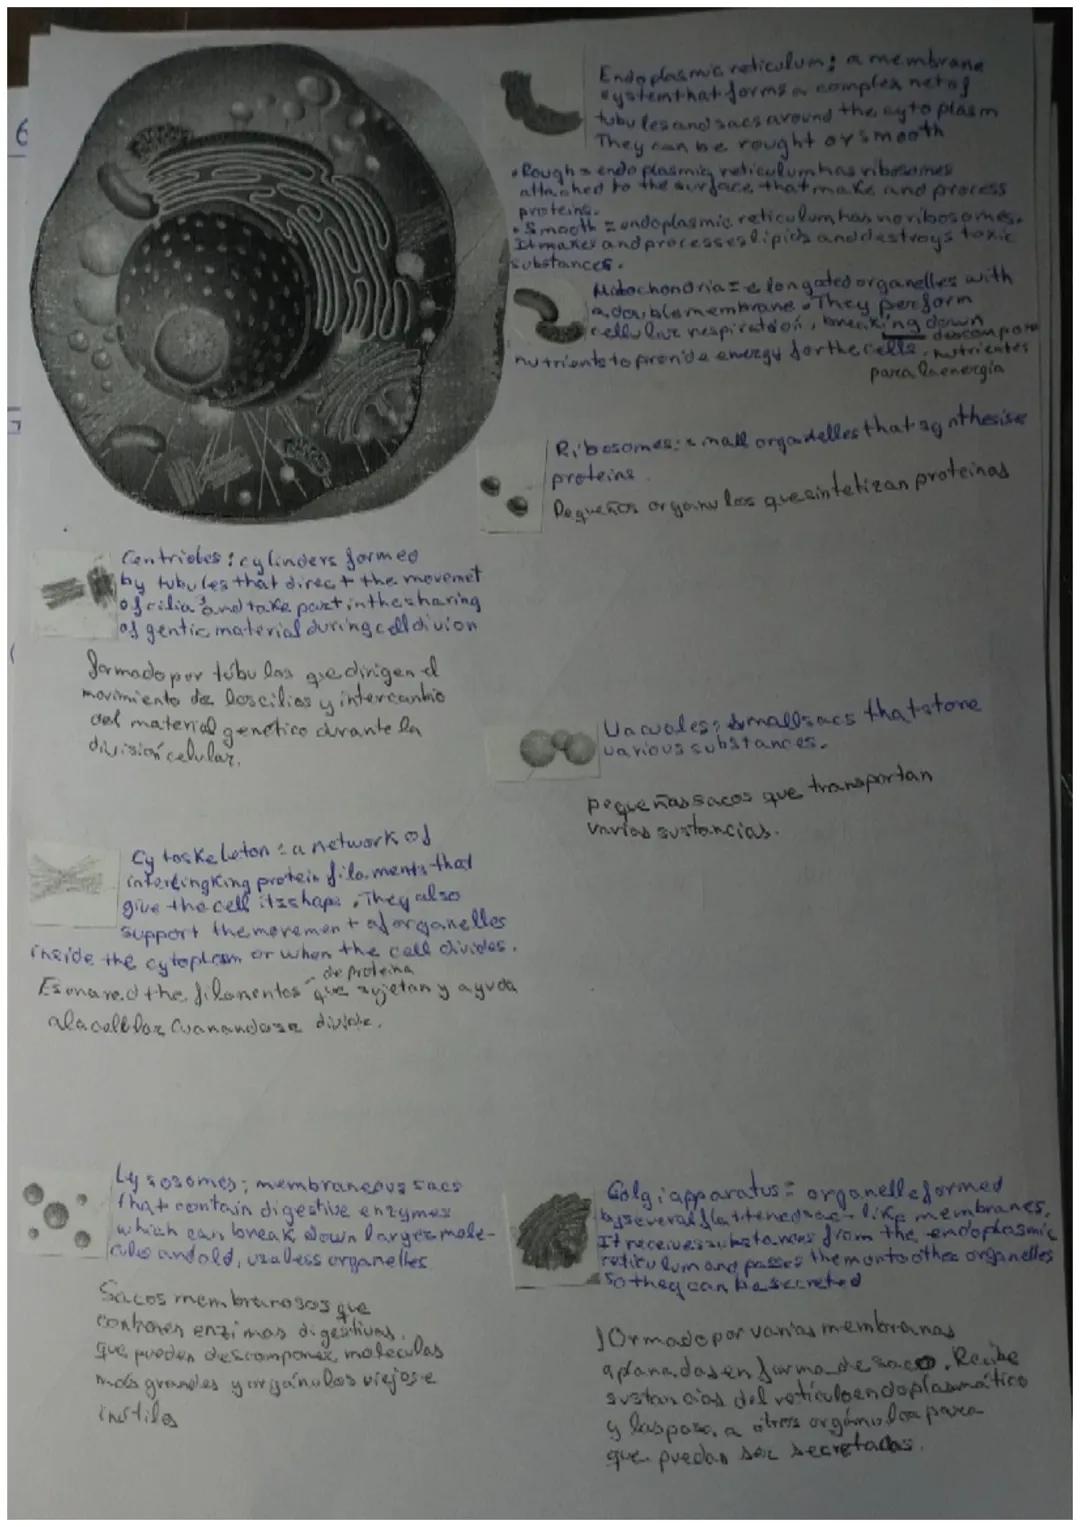 6
Endoplasmic reticulum; a membrane
system that forms a complex net of
tubules and sacs around the cytoplasm
They can be rought or smooth
• Rough = endoplasmic reticulum has ribosomes
attached to the surface that make and process
proteins.
• Smooth = endoplasmic reticulum has no ribosomes.
It makes and processes lipids and destroys toxic
substances.
Mitochondria = elongated organelles with
a double membrane. They perform
cellular respiration, breaking down
nutrients to provide energy for the cells.
descompone
nutrientes
para la energía
Ribosomes: small organelles that synthesise
proteins.
Pequeños organulos que sintetizan proteinas
Centrioles: cylinders formed
by tubules that direct the movemet
of cilia and take part in the sharing
of gentic material during cell divion
formado por túbulos que dirigen el
movimiento de los cilios y intercambio
del material genético durante la
división celular.
Vacuoles; smallsacs that store
various substances.
pequeñas sacos que transportan
varias sustancias.
Cytoskeleton: a network of
interlingking protein filaments that
give the cell its shape. They also
support the movement of organelles
inside the cytoplasm or when the cell divides.
de proteina
filamentos que sujetan y ayuda
divide.
Lysosomes; membraneous sacs
that contain digestive enzymes
which can break down larger mole-
cules and old, useless organelles
Sacos membranosos que
contienen enzimas digestivas.
que pueden descomponer moleculas
más grandes y orgánulos viejos e
inútiles
Golgi apparatus = organelle formed
by several flattened sac-like membranes.
It receives substances from the endoplasmic
reticulum and passes them onto other organelles
so they can be secreted
formado por varias membranas
aplanadas en forma de saco. Recibe
sustancias del reticulo endoplasmático
y las pasa a otros orgánulos para
que puedan ser secretadas.